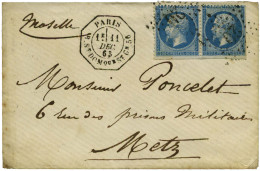 Moselle
PARIS
11
DEC
63
Monsieur Poncelet
6 rue des prisons Militaires
Metz